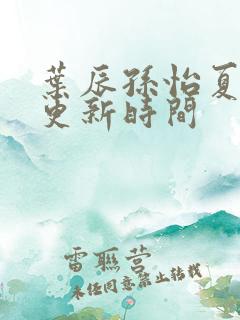 葉辰孫怡夏
更新時間
雷聯營
未经同意禁止转载